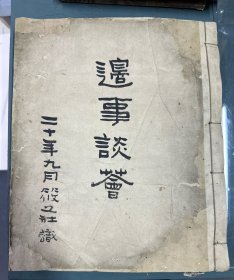 邊事談薈
二十年九月筱之社識